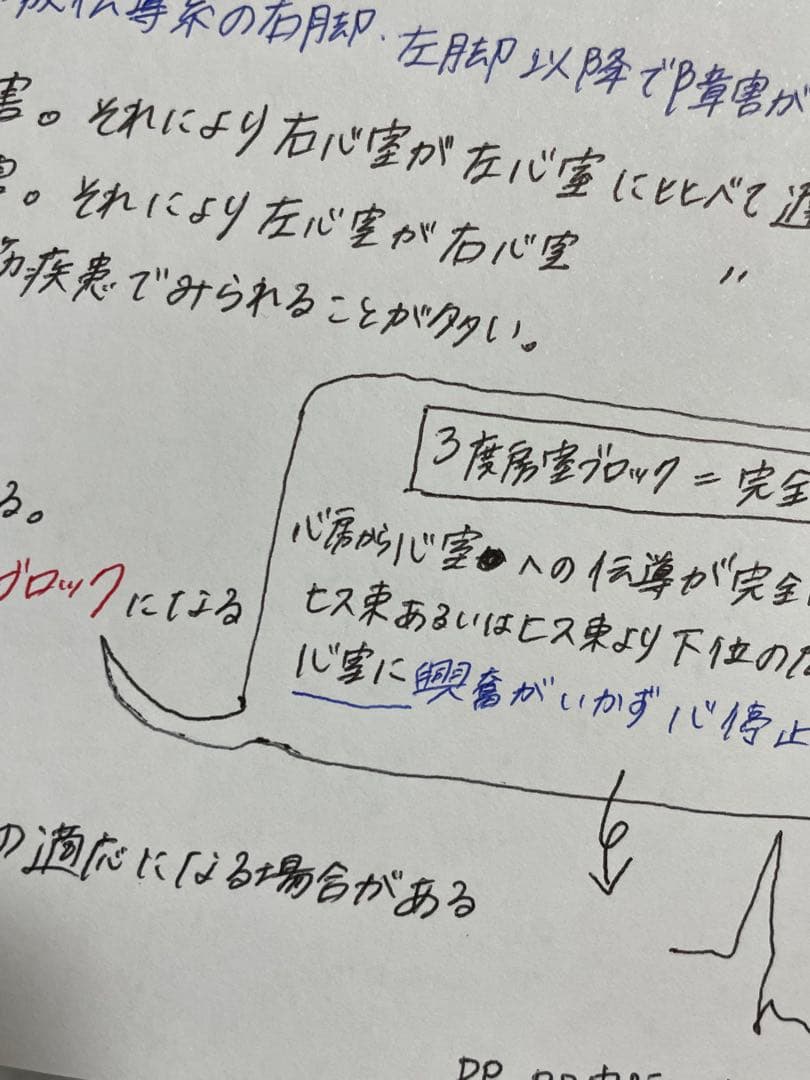 伝導系の右脚.左脚以降で障害が
害。それにより右心室が左心室にくらべて
。それにより左心室が右心室 〃
疾患でみられることが多い。
3度房室ブロック=完全
る。
心房から心室への伝導が完全
ブロックになる
ヒス束あるいはヒス束より下位の
心室に興奮がいかず心停止
の適応になる場合がある